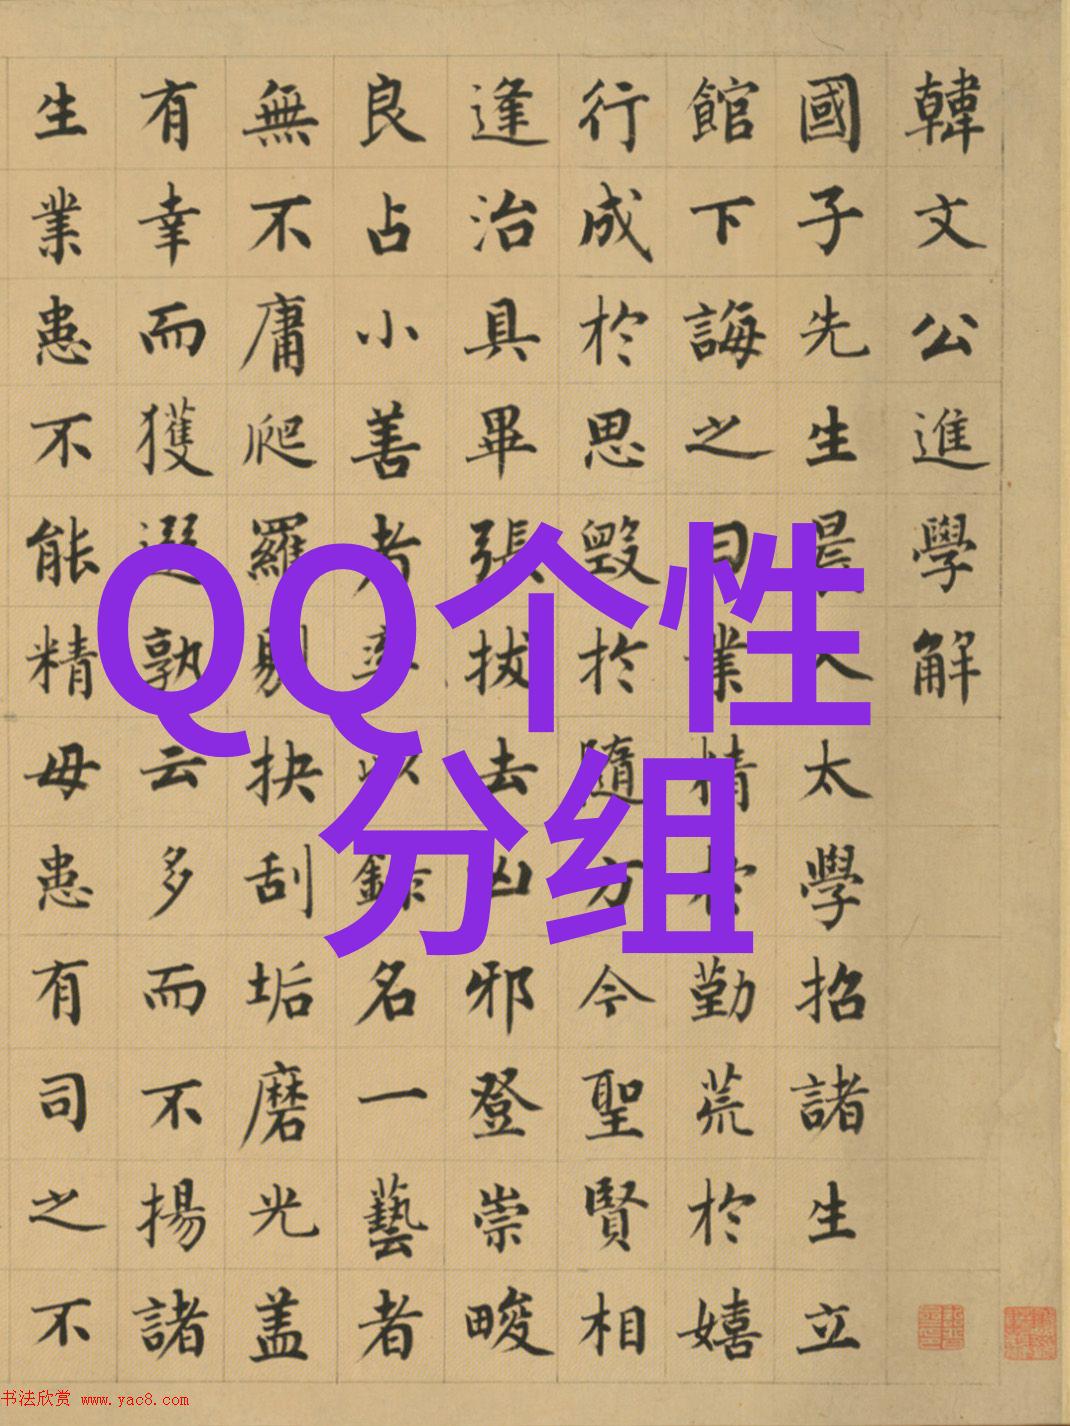 韓文公進學解
國子先生晨入太學招諸生立
館下誨之曰業精於勤荒於嬉
行成於思毀於隨方今聖賢相
逢治具畢張拔去凶邪登崇畯
良占小善者率以錄名一藝者
無不庸爬羅剔抉刮垢磨光盖
有幸而獲選孰云多而不揚諸
生業患不能精毋患有司之不
QQ个性
分组
书法欣赏 www.yac8.com